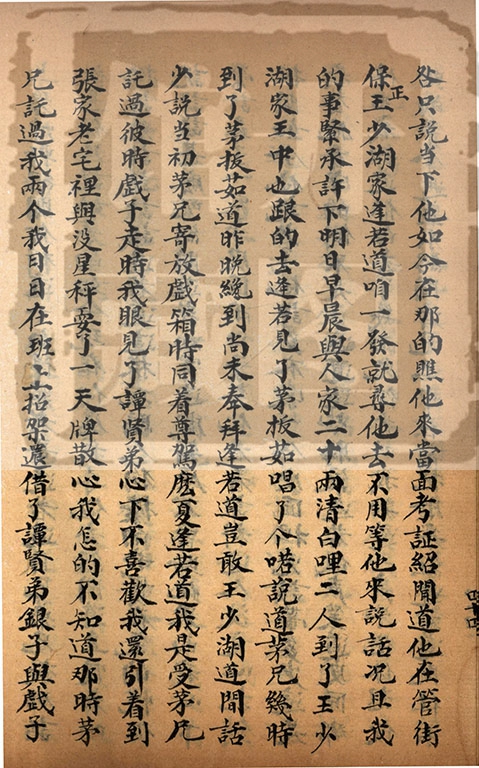 咎只說当下他如今在那的瞧他來當面考証紹聞道他在管街
保正王少湖家逢若道咱一發就尋他去不用等他來說話况且我
的事緊承許下明日早晨與人家二十兩清白哩二人到了王少
湖家王中也跟的去逢若見了茅拔茹唱了个喏說道茅兄幾時
到了茅拔茹道昨晚纔到尚未奉拜逢若道豈敢王少湖道閒話
少說当初茅兄寄放戲箱時同着尊駕麽夏逢若道我是受茅兄
託過彼時戲子走時我眼見了譚賢弟心下不喜歡我還引着到
張家老宅裡與没星秤耍了一天牌散心我怎的不知道那時茅
兄託過我兩个我日日在班上招架還借了譚賢弟銀子與戲子